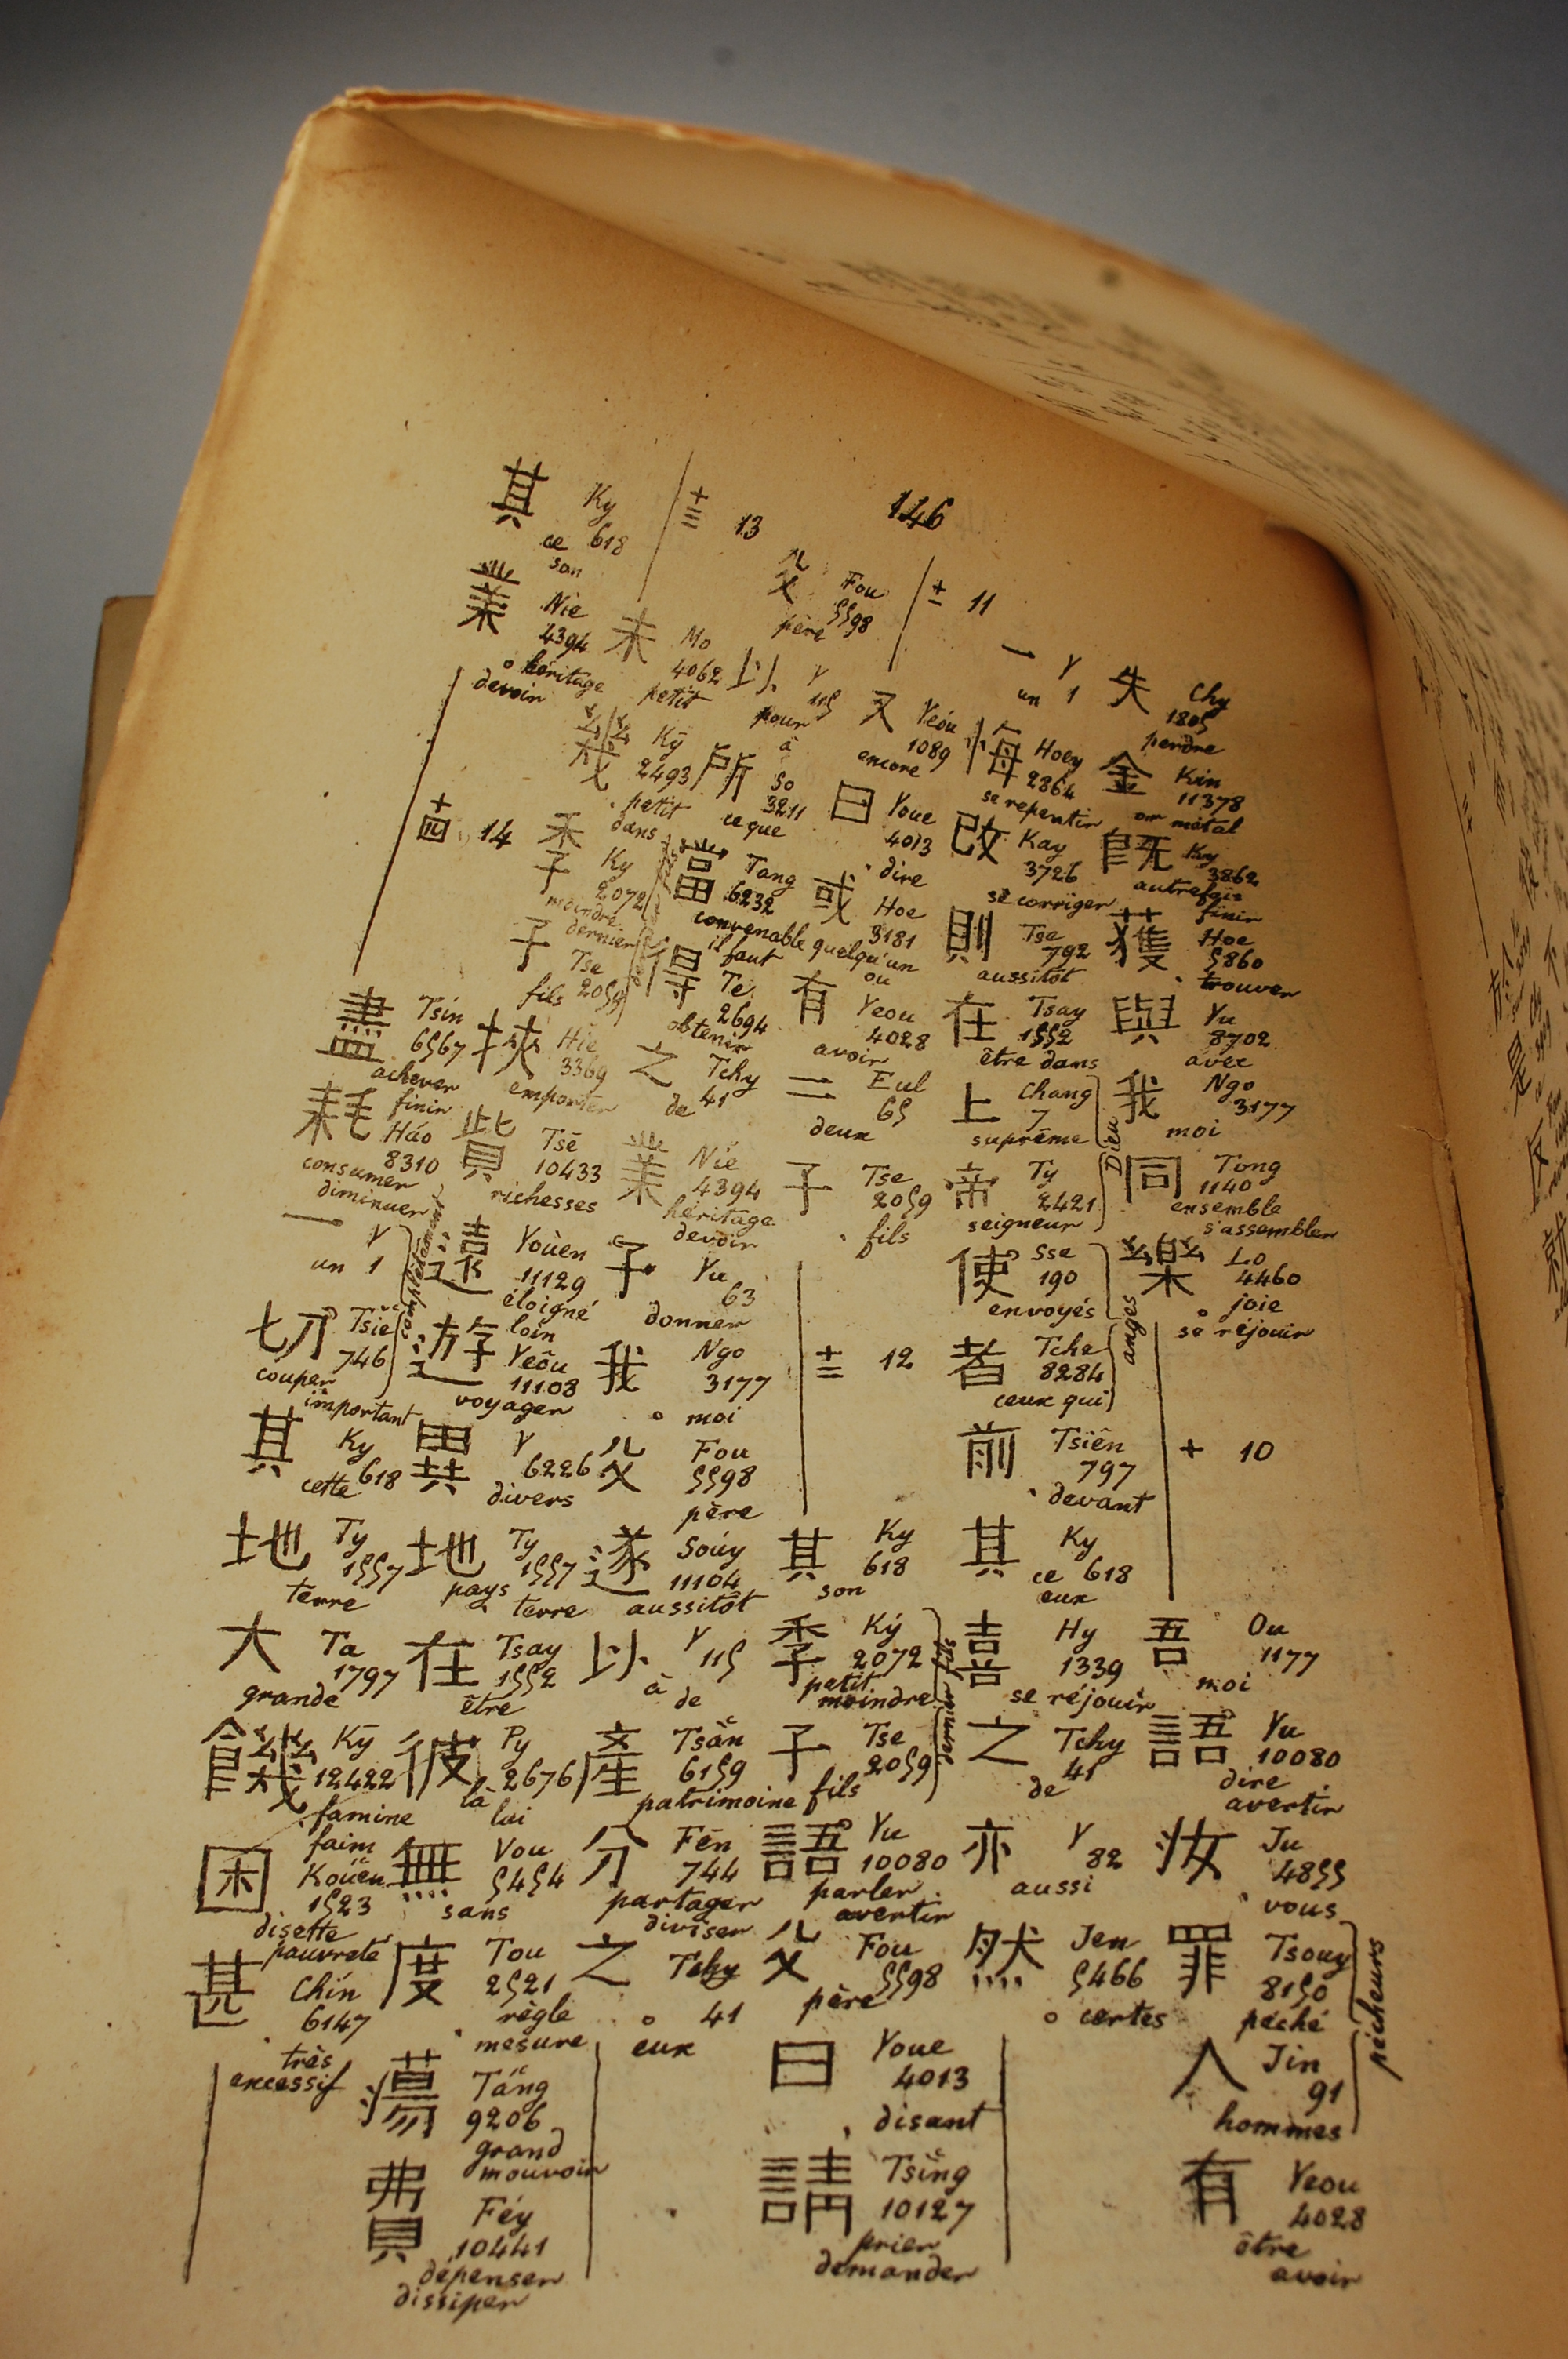 146
失 Chy
1805
perdre
金 Kin
11378
or métal
既 Ky
3862
autrefois
finir
獲 Hoe
5860
trouver
與 Yu
8702
avec
我 Ngo
3177
moi
同 Tong
1140
ensemble
s'assembler
樂 Lo
4460
joie
se réjouir
十 10
吾 Ou
1177
moi
語 Yu
10080
dire
avertir
汝 Ju
4855
vous
罪 Tsouy
8150
péché
人 Jin
91
hommes
pécheurs
有 Yeou
4028
être
avoir
一 Y
un 1
悔 Hoey
2864
se repentir
改 Kay
3726
se corriger
則 Tse
792
aussitôt
在 Tsay
1552
être dans
上 Chang
7
suprême
帝 Ty
2421
seigneur
Dieu
使 Sse
190
envoyés
者 Tche
8284
ceux qui
anges
前 Tsiên
797
devant
其 Ky
ce 618
eux
喜 Hy
1339
se réjouir
之 Tchy
41
de
亦 Y
82
aussi
然 Jen
5466
certes
十一 11
又 Yeóu
1089
encore
曰 Youe
4013
dire
或 Hoe
3181
quelqu'un
ou
有 Yeou
4028
avoir
二 Eul
65
deux
子 Tse
2059
fils
十二 12
其 Ky
618
son
季 Ký
2072
petit
moindre
子 Tse
2059
fils
dernier
語 Yu
10080
parler
avertir
父 Fou
5598
père
曰 Youe
4013
disant
請 Tsïng
10127
prier
demander
父 Fou
5598
père
以 Y
115
pour
à
所 So
3211
ce que
當 Tang
6232
convenable
il faut
得 Te
2694
obtenir
之 Tchy
de 41
業 Nie
4394
héritage
devoir
予 Yu
63
donner
我 Ngo
3177
moi
父 Fou
5598
père
遂 Soúy
11104
aussitôt
以 Y
115
à
de
產 Tsǎn
6159
patrimoine
分 Fēn
744
partager
diviser
之 Tchy
41
eux
十三 13
未 Mo
4062
petit
幾 Ky
2493
petit
dans
季 Ky
2072
moindre
dernier
子 Tse
fils 2059
挾 Hie
3369
emporter
貲 Tsē
10433
richesses
遠 Youèn
11129
éloigné
loin
遊 Yeôu
11108
voyager
異 Y
6226
divers
地 Ty
1557
pays
terre
在 Tsay
1552
être
彼 Py
2676
là
lui
無 Vou
5454
sans
度 Tou
2521
règle
mesure
蕩 Táng
9206
grand
mouvoir
費 Féy
10441
dépenser
dissiper
其 Ky
ce 618
son
業 Nie
4394
héritage
devoir
十四 14
盡 Tsin
6567
achever
finir
耗 Háo
8310
consumer
diminuer
一 Y
un 1
切 Tsie
746
couper
important
complètement
其 Ky
cette 618
地 Ty
1557
terre
大 Ta
1797
grande
饑 Ky
12422
famine
faim
困 Kouen
1523
disette
pauvreté
甚 Chin
6147
très
excessif